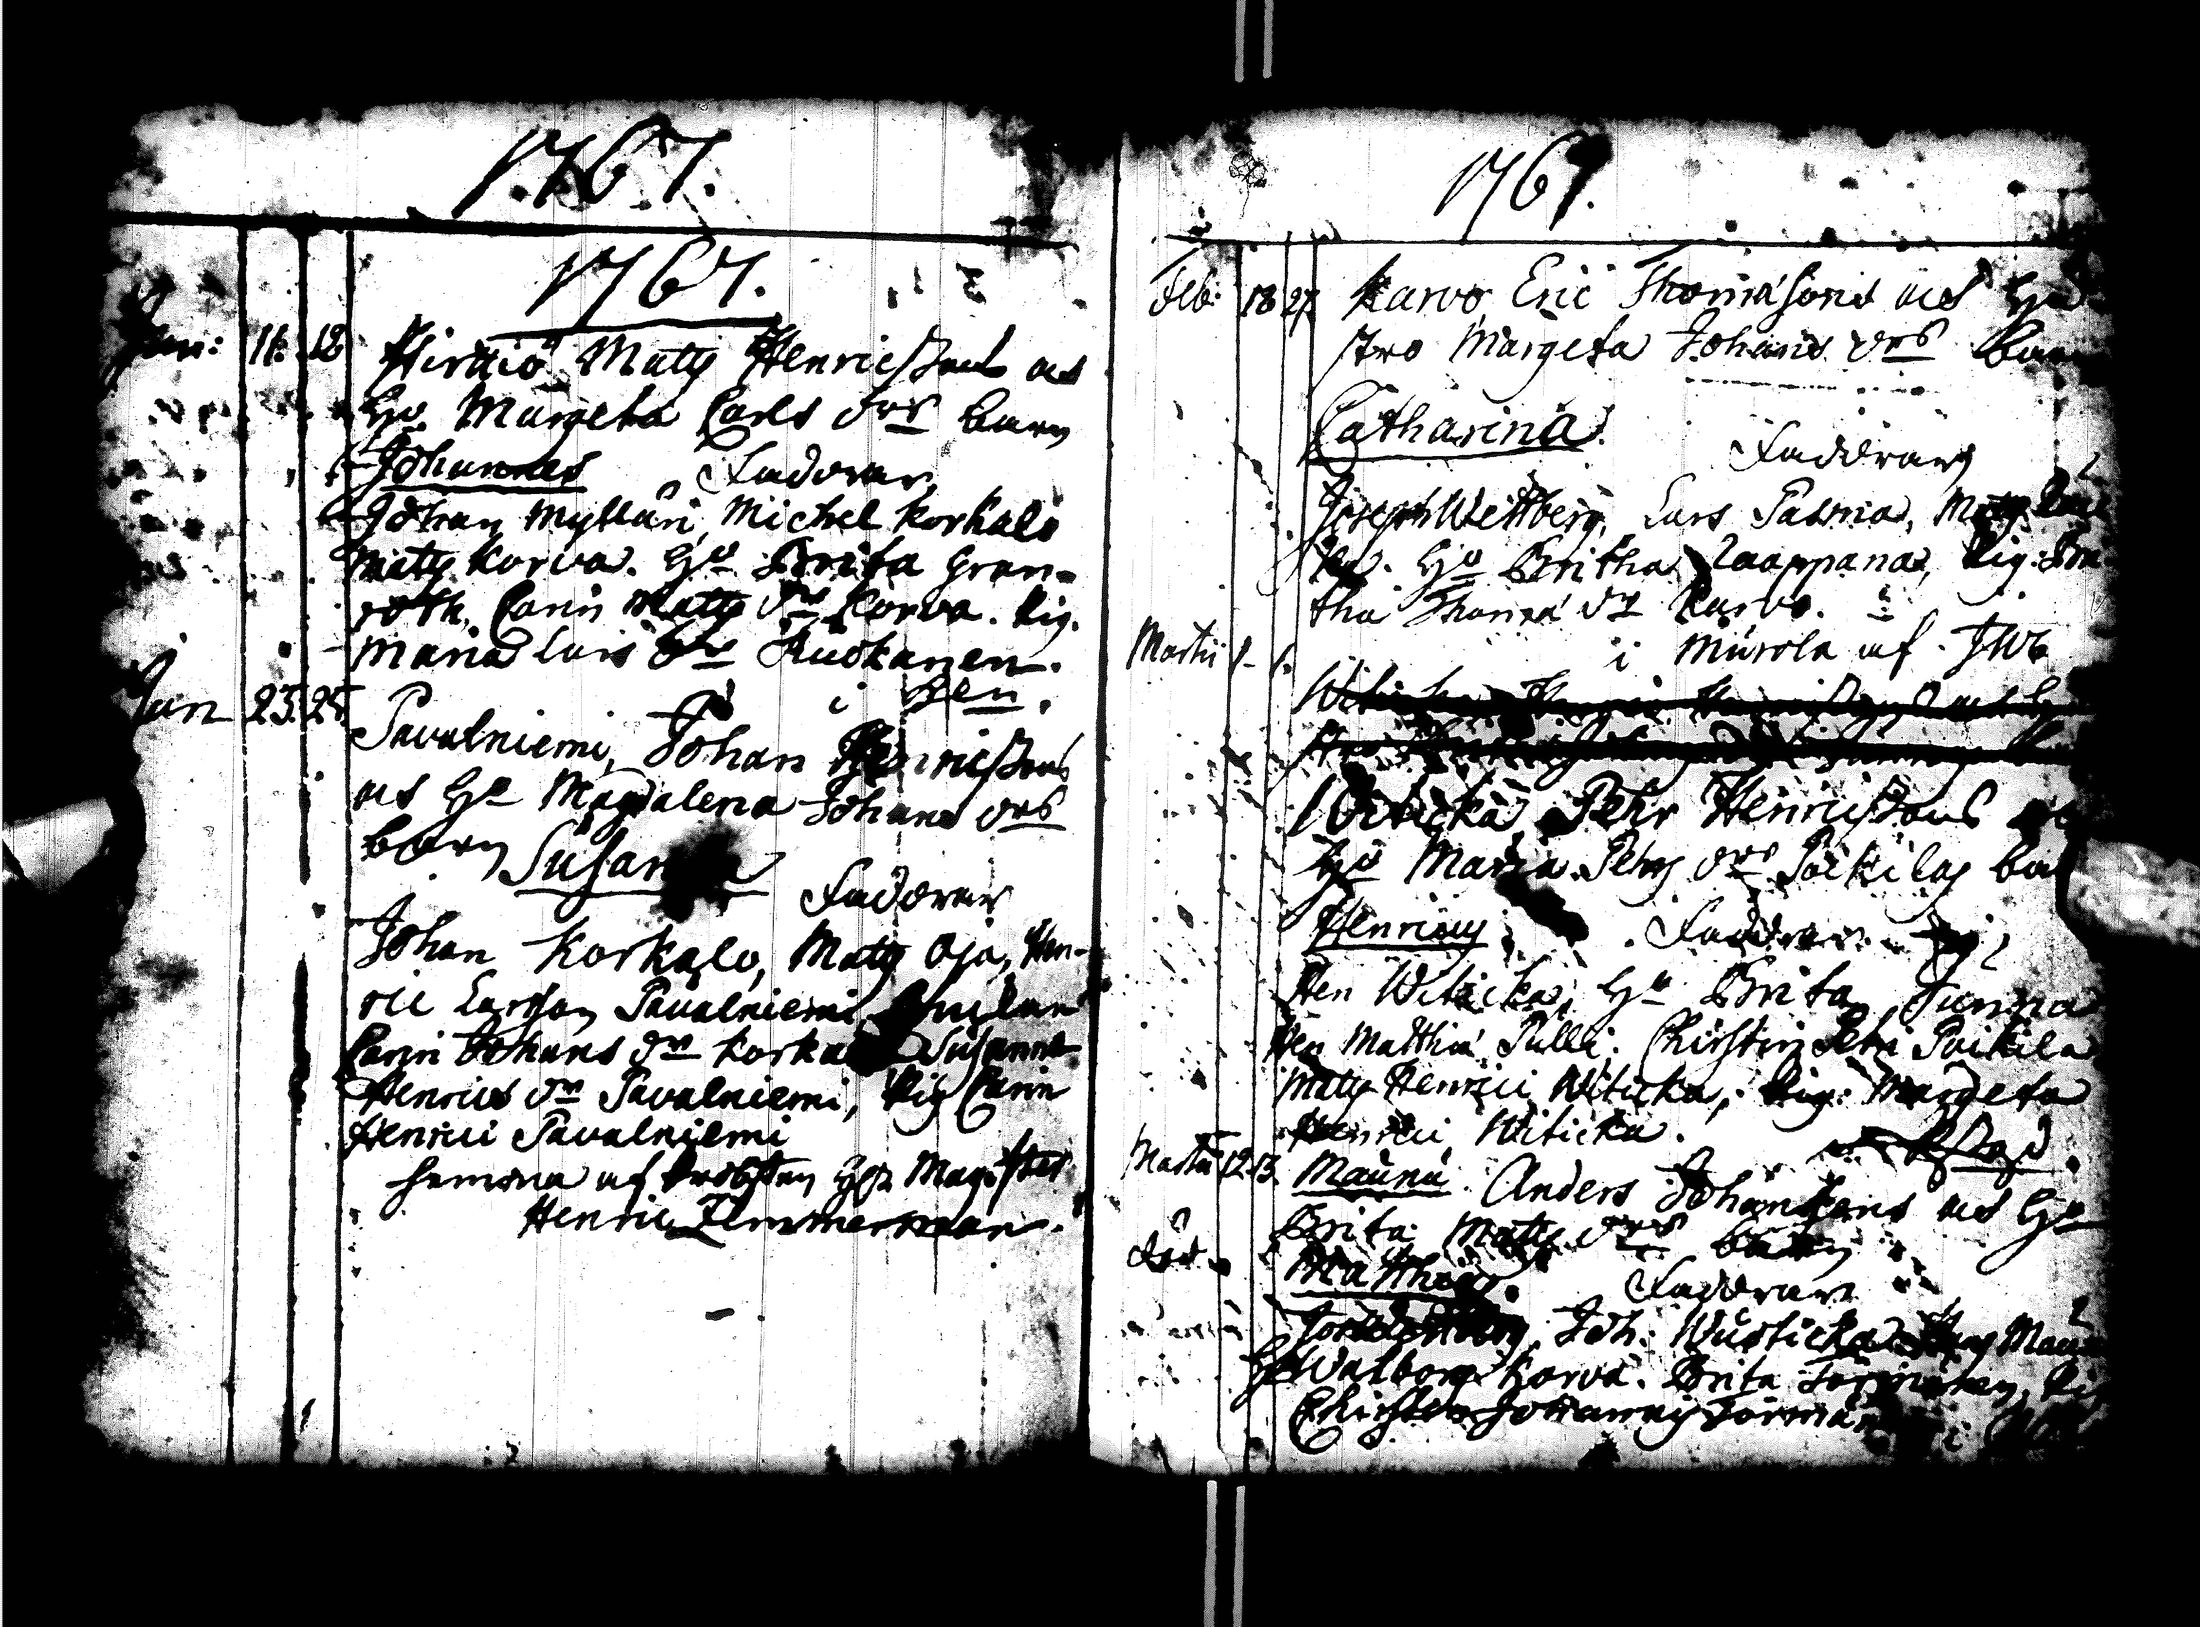 1767.
1767.
Jan: 11. 12
Hirttiö Matts Henricssons och
Hu Margeta Carls drs barn
Johannes Faddrar
Johan Mylläri, Michel Korkalo
Matts Korva. Hu Brita Gran-
roth, Carin Matts dr Korva. Pig.
Maria Lars dr Ruokanen.
Jan 23. 25.
Pavalniemi, Johan Henricssons
och Hu Magdalena Johans drs
barn Susanna
Faddrar
Johan Korkalo, Matts Oja, Hen-
ric Larsson Pavalniemi
Carin Johans dr Korkalo Susanna
Henrics dr Pavalniemi, Pig Carin
Henrici Pavalniemi
hemma af Probsten Hr Magister
Henric Zimmerman.
1767.
Feb: 18 27
Karvo, Eric Thomæ sons och Hu
stro Margeta Johans drs barn
Catharina.
Faddrar
Joseph Wettberg, Lars Palma, Matts
Hu Britha Zaappana, Pig. Bri-
tha Thomæ dr Karvo.
i Murola af
Martii 1. 1.
Witicka, Pehr Henricssons och
Hu Maria Pehrs drs Poikila barn
Henricus Faddrar
Hen Witicka, Hu Brita
Matthiæ Pulli. Christin Petri Poikila
Matts Henrici Witicka, Pig: Margeta
Henrici Witicka.
Martii 12. 13.
Maunu Anders Johanssons och Hu
Brita Matts drs barn
Matthias.
Faddrar
Joh: Wusticka
Hu Walborg Korva. Brita Törmänen, Pig
Christin Johannis Törmän